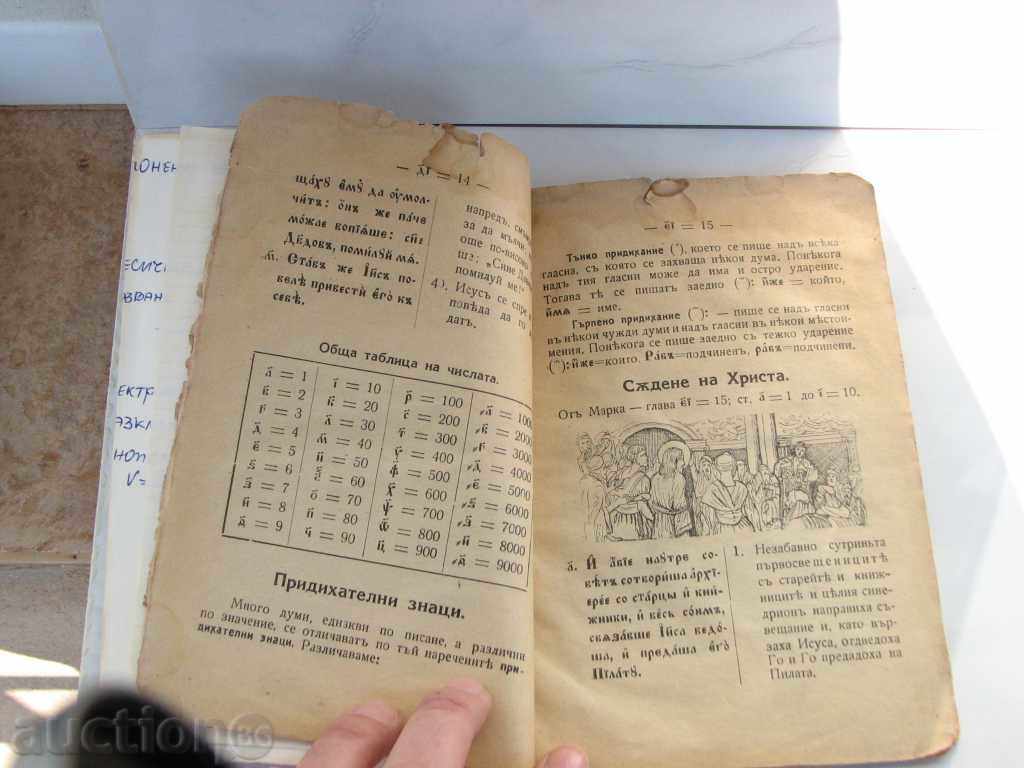 — ДІ = 14 —
щахꙋ емꙋ да оумол-
читъ: онъ же паче
можае вопіѧше: сн҃е
Дѣдовъ, помилꙋй мѧ.
м҃. Ставъ же Іисъ по-
велѣ привести его къ
себѣ.
напредъ, см
за да мълчи
още по-висо
ше: „Сине Да
помилуй ме!“
4). Исусъ се спр
повѣда да го
датъ.
Обща таблица на числата.
а҃ = 1 і҃ = 10 р҃ = 100 ҂а҃ = 1000
в҃ = 2 к҃ = 20 с҃ = 200 ҂в҃ = 2000
г҃ = 3 л҃ = 30 т҃ = 300 ҂г҃ = 3000
д҃ = 4 м҃ = 40 у҃ = 400 ҂д҃ = 4000
е҃ = 5 н҃ = 50 ф҃ = 500 ҂е҃ = 5000
ѕ҃ = 6 ѯ҃ = 60 х҃ = 600 ҂ѕ҃ = 6000
з҃ = 7 о҃ = 70 ѱ҃ = 700 ҂з҃ = 7000
и҃ = 8 п҃ = 80 ѿ҃ = 800 ҂и҃ = 8000
ѳ҃ = 9 ч҃ = 90 ц҃ = 900 ҂ѳ҃ = 9000
Придихателни знаци.
Много думи, еднзкви по писане, а различни
по значение, се отличаватъ по тъй нареченитѣ при-
дихателни знаци. Различаваме:
— ЕІ = 15 —
Тънко придихание (҅), което се пише надъ всѣка
гласна, съ която се захваща нѣкоя дума. Понѣкога
надъ тия гласни може да има и остро ударение.
Тогава тѣ се пишатъ заедно (῎): иже = който,
имѧ = име.
Гърлено придихание (҆): — пише се надъ гласни
въ нѣкои чужди думи и надъ гласни въ нѣкои мѣстои-
мения. Понѣкога се пише заедно съ тежко ударение
(῍): иже=които. Рабъ=подчиненъ, рабъ=подчинени.
Сѫдене на Христа.
Отъ Марка — глава еі҃ = 15; ст. а҃ = 1 до і҃ = 10.
а҃. И абіе наутре со-
вѣтъ сотвориша архі-
ерее со старцы и кни-
жники, и весь сонмъ,
свѧзавше Іиса ведо-
ша, и предаша его
Пілатꙋ.
1. Незабавно сутриньта
първосвещеницитѣ
съ старейтѣ и книж-
ницитѣ и цѣлия сине-
дрионъ направиха съ-
вещание и, като вър-
заха Исуса, отведоха
Го и Го предадоха на
Пилата.
ЕКТР
НОП
V=
auction BG